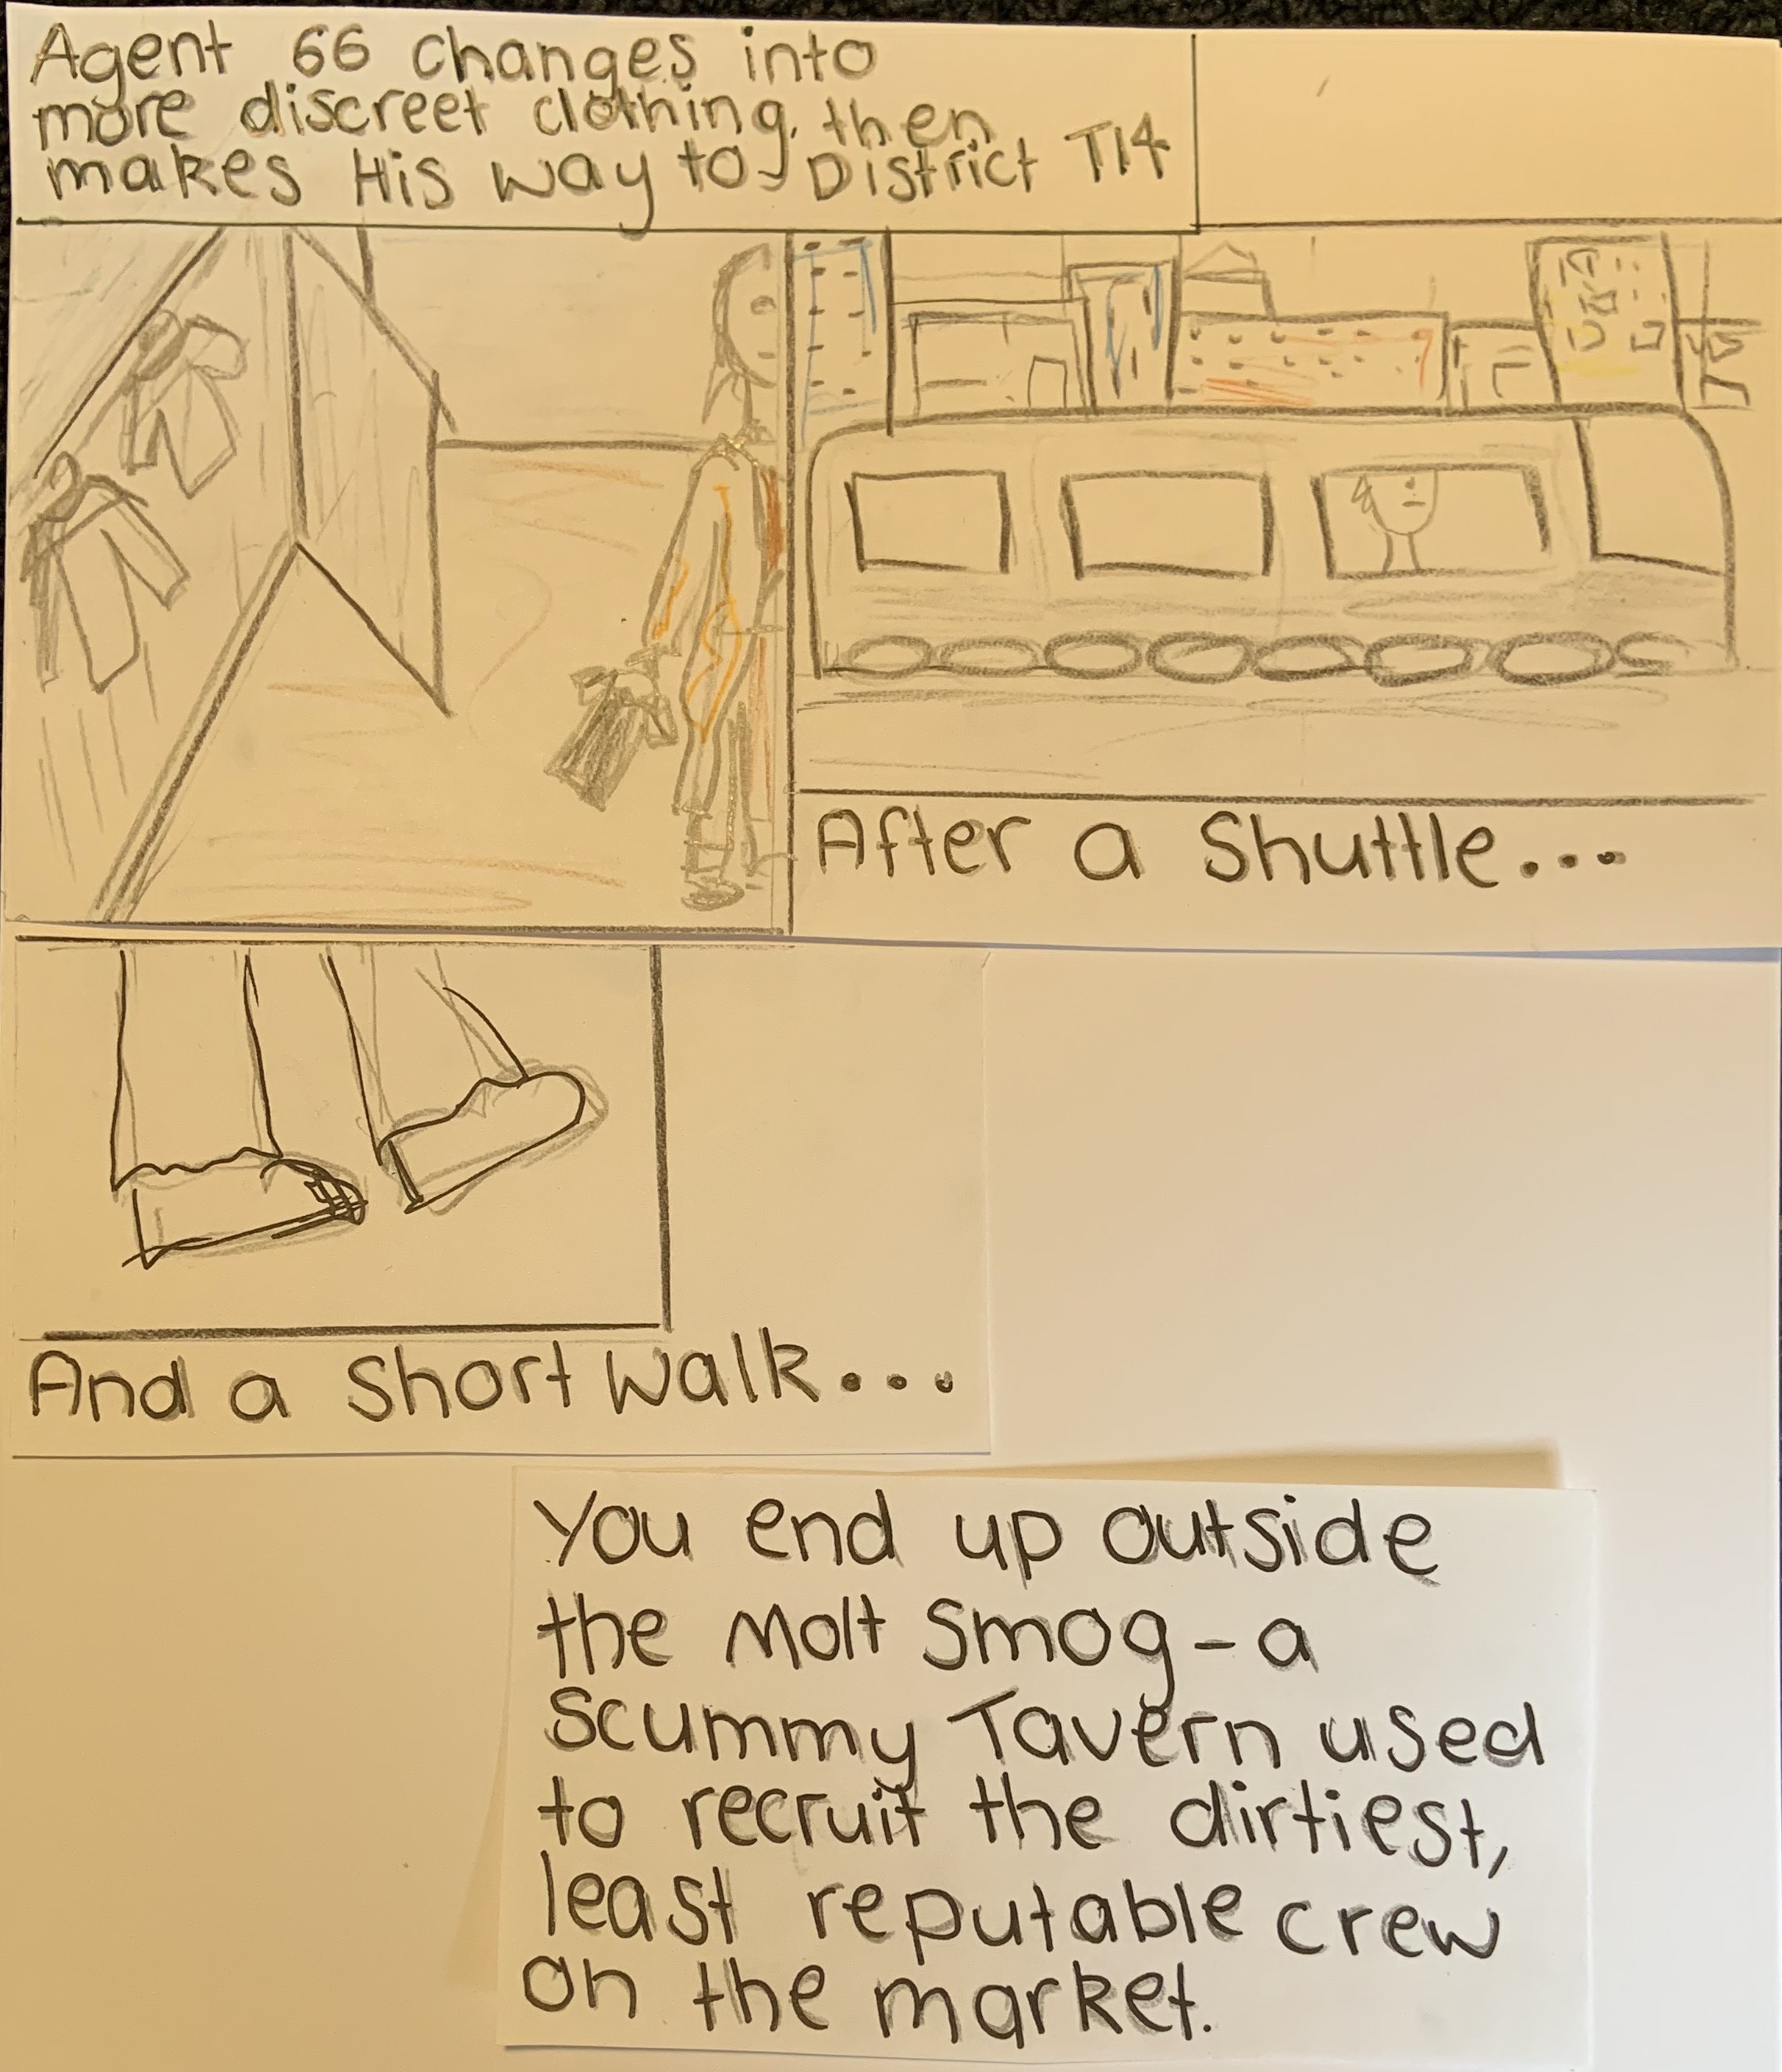 Agent 66 changes into
more discreet clothing, then
makes His way to District T14
After a Shuttle...
And a Short walk...
You end up outside
the Molt Smog - a
Scummy Tavern used
to recruit the dirtiest,
least reputable crew
on the market.